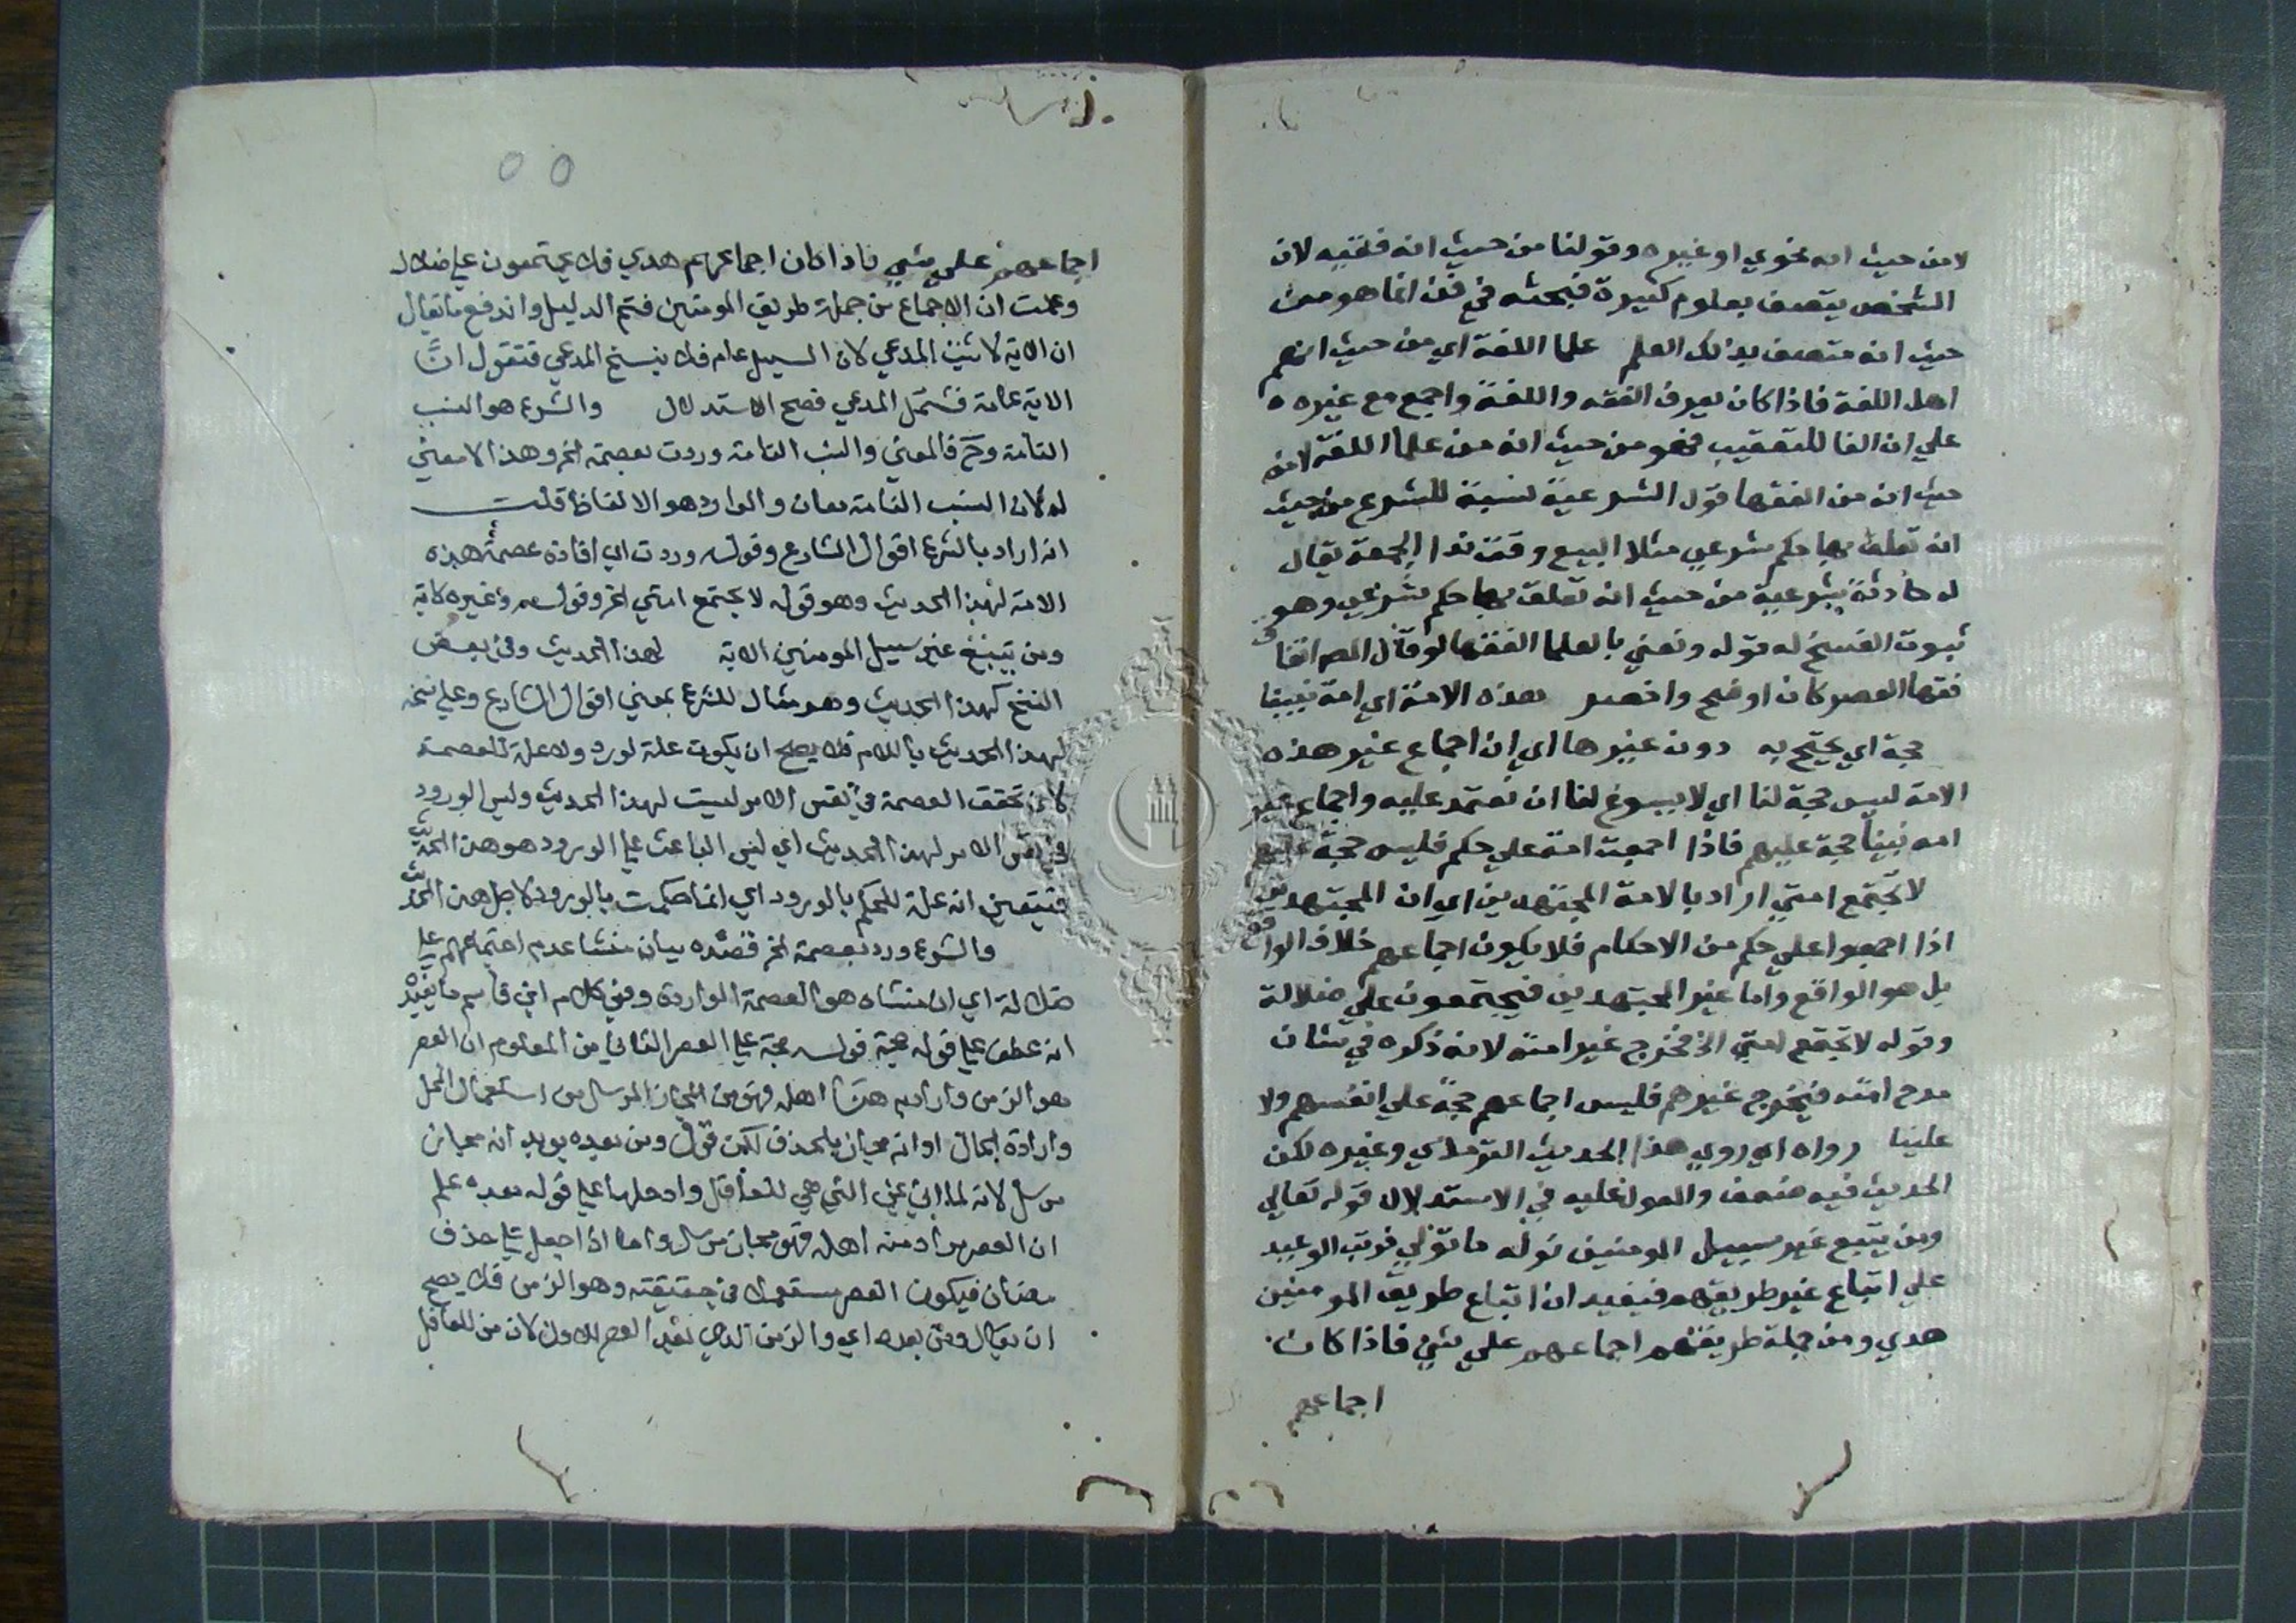 لا من حيث انه نحوي او غيره وقولنا من حيث انه فقيه لان
الشخص يتصف بعلوم كثيرة فبحثه في فن انما هو من
حيث انه متصف بذلك العلم علما اللغة اي من حيث انهم
اهل اللغة فاذا كان يعرف الفقه واللغة واجمع مع غيره
علي ان الفا للتعقيب فهو من حيث انه من علما اللغة لا من
حيث انه من الفقها قوله الشرعية نسبة للشرع من حيث
انه تعلق بها حكم شرعي مثلا البيع وقت ندا الجمعة يقال
له حادثة شرعية من حيث انه تعلق بها حكم شرعي وهو
ثبوت الفسخ له قوله ونعني بالعلما الفقها لو قال المص اتفاق
فقها العصر كان اوضح واخصر هذه الامة اي امة نبينا
حجة اي يحتج به دون غيرها اي ان اجماع غير هذه
الامة ليس حجة لنا اي لا يسوغ لنا ان نعتمد عليه واجماع غير
امة نبينا حجة عليهم فاذا اجمعت امة علي حكم فليس حجة عليهم
لا تجتمع امتي اراد بالامة المجتهدين اي ان المجتهدين
اذا اجمعوا علي حكم من الاحكام فلا يكون اجماعهم خلاف الواقع
بل هو الواقع واما غير المجتهدين فيجتمعون علي ضلالة
وقوله لا تجتمع امتي الخ فخرج غير امته لانه ذكره في شان
مدح امته فيخرج غيرهم فليس اجماعهم حجة علي انفسهم ولا
علينا رواه اي روي هذا الحديث الترمذي وغيره لكن
الحديث فيه ضعف والمعول عليه في الاستدلال قوله تعالي
ومن يتبع غير سبيل المومنين نوله ما تولي فرتب الوعيد
علي اتباع غير طريقهم فيفيد ان اتباع طريق المومنين
هدي ومن جملة طريقتهم اجماعهم علي شي فاذا كان
اجماعهم
اجماعهم علي شي فاذا كان اجماعهم هدي فلا يجتمعون علي ضلال
وعلمت ان الاجماع من جملة طريق المومنين فتم الدليل واندفع ما يقال
ان الاية لا تثبت المدعي لان السبيل عام فلا ينتج المدعي فتقول ان
الاية عامة فتشمل المدعي فصح الاستدلال والشرع هو النسب
التامة وح فالمعني والنسب التامة وردت بعصمة الخ وهذا لا معني
له لان النسب التامة معان والوارد هو الالفاظ قلت
انه اراد بالشرع اقوال الشارع وقوله وردت اي افادة عصمة هذه
الامة لهذا الحديث وهو قوله لا تجتمع امتي الخ وقوله وغيره كاية
ومن يتبع غير سبيل المومنين الاية لهذا الحديث وفي بعض
النسخ كهذا الحديث وهو مثال للشرع بمعني اقوال الشارع وعلي نسخة
لهذا الحديث باللام فلا يصح ان يكون علة لورد ولا علة للعصمة
لان تحقق العصمة في نفس الامر ليست لهذا الحديث وليس الورود
في نفس الامر لهذا الحديث اي ليس الباعث علي الورود هو هذا الحديث
فتيقن انه علة للحكم بالورود اي انما حكمت بالورود لاجل هذا الحديث
والشرع ورد بعصمة الخ قصده بيان منشا عدم اجتماعهم علي
ضلالة اي ان منشاه هو العصمة الواردة وفي كلام ابن قاسم ما يفيد
انه عطف علي قوله حجة قوله حجة علي العصر الثاني من المعلوم ان العصر
هو الزمن واراد به هنا اهله فهو من المجاز المرسل من استعمال المحل
وارادة الحال او انه مجاز بالحذف لكن قوله ومن بعده يويد انه مجاز
مرسل لانه لما اتي بمن التي هي للعاقل وادخلها علي قوله بعده علم
ان العصر مراد منه اهله فهو مجاز مرسل واما اذا جعل علي حذف
مضاف فيكون العصر مستعملا في حقيقته وهو الزمن فلا يصح
ان يقال ومن بعده اي والزمن الذي بعد العصر الاول لان من للعاقل